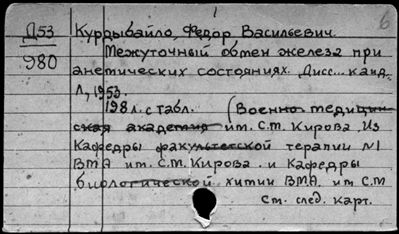 6
Д53 Курдыбайло, Федор Васильевич.
980 Межуточный обмен железа при
анемических состояниях. Дисс... канд.
Л, 1953.
198 л. с табл. (Военно-медицин-
ская академия им. С.М. Кирова. Из
Кафедры факультетской терапии №1
ВМА им. С.М. Кирова и Кафедры
биологической химии ВМА им С.М
См. след. карт.